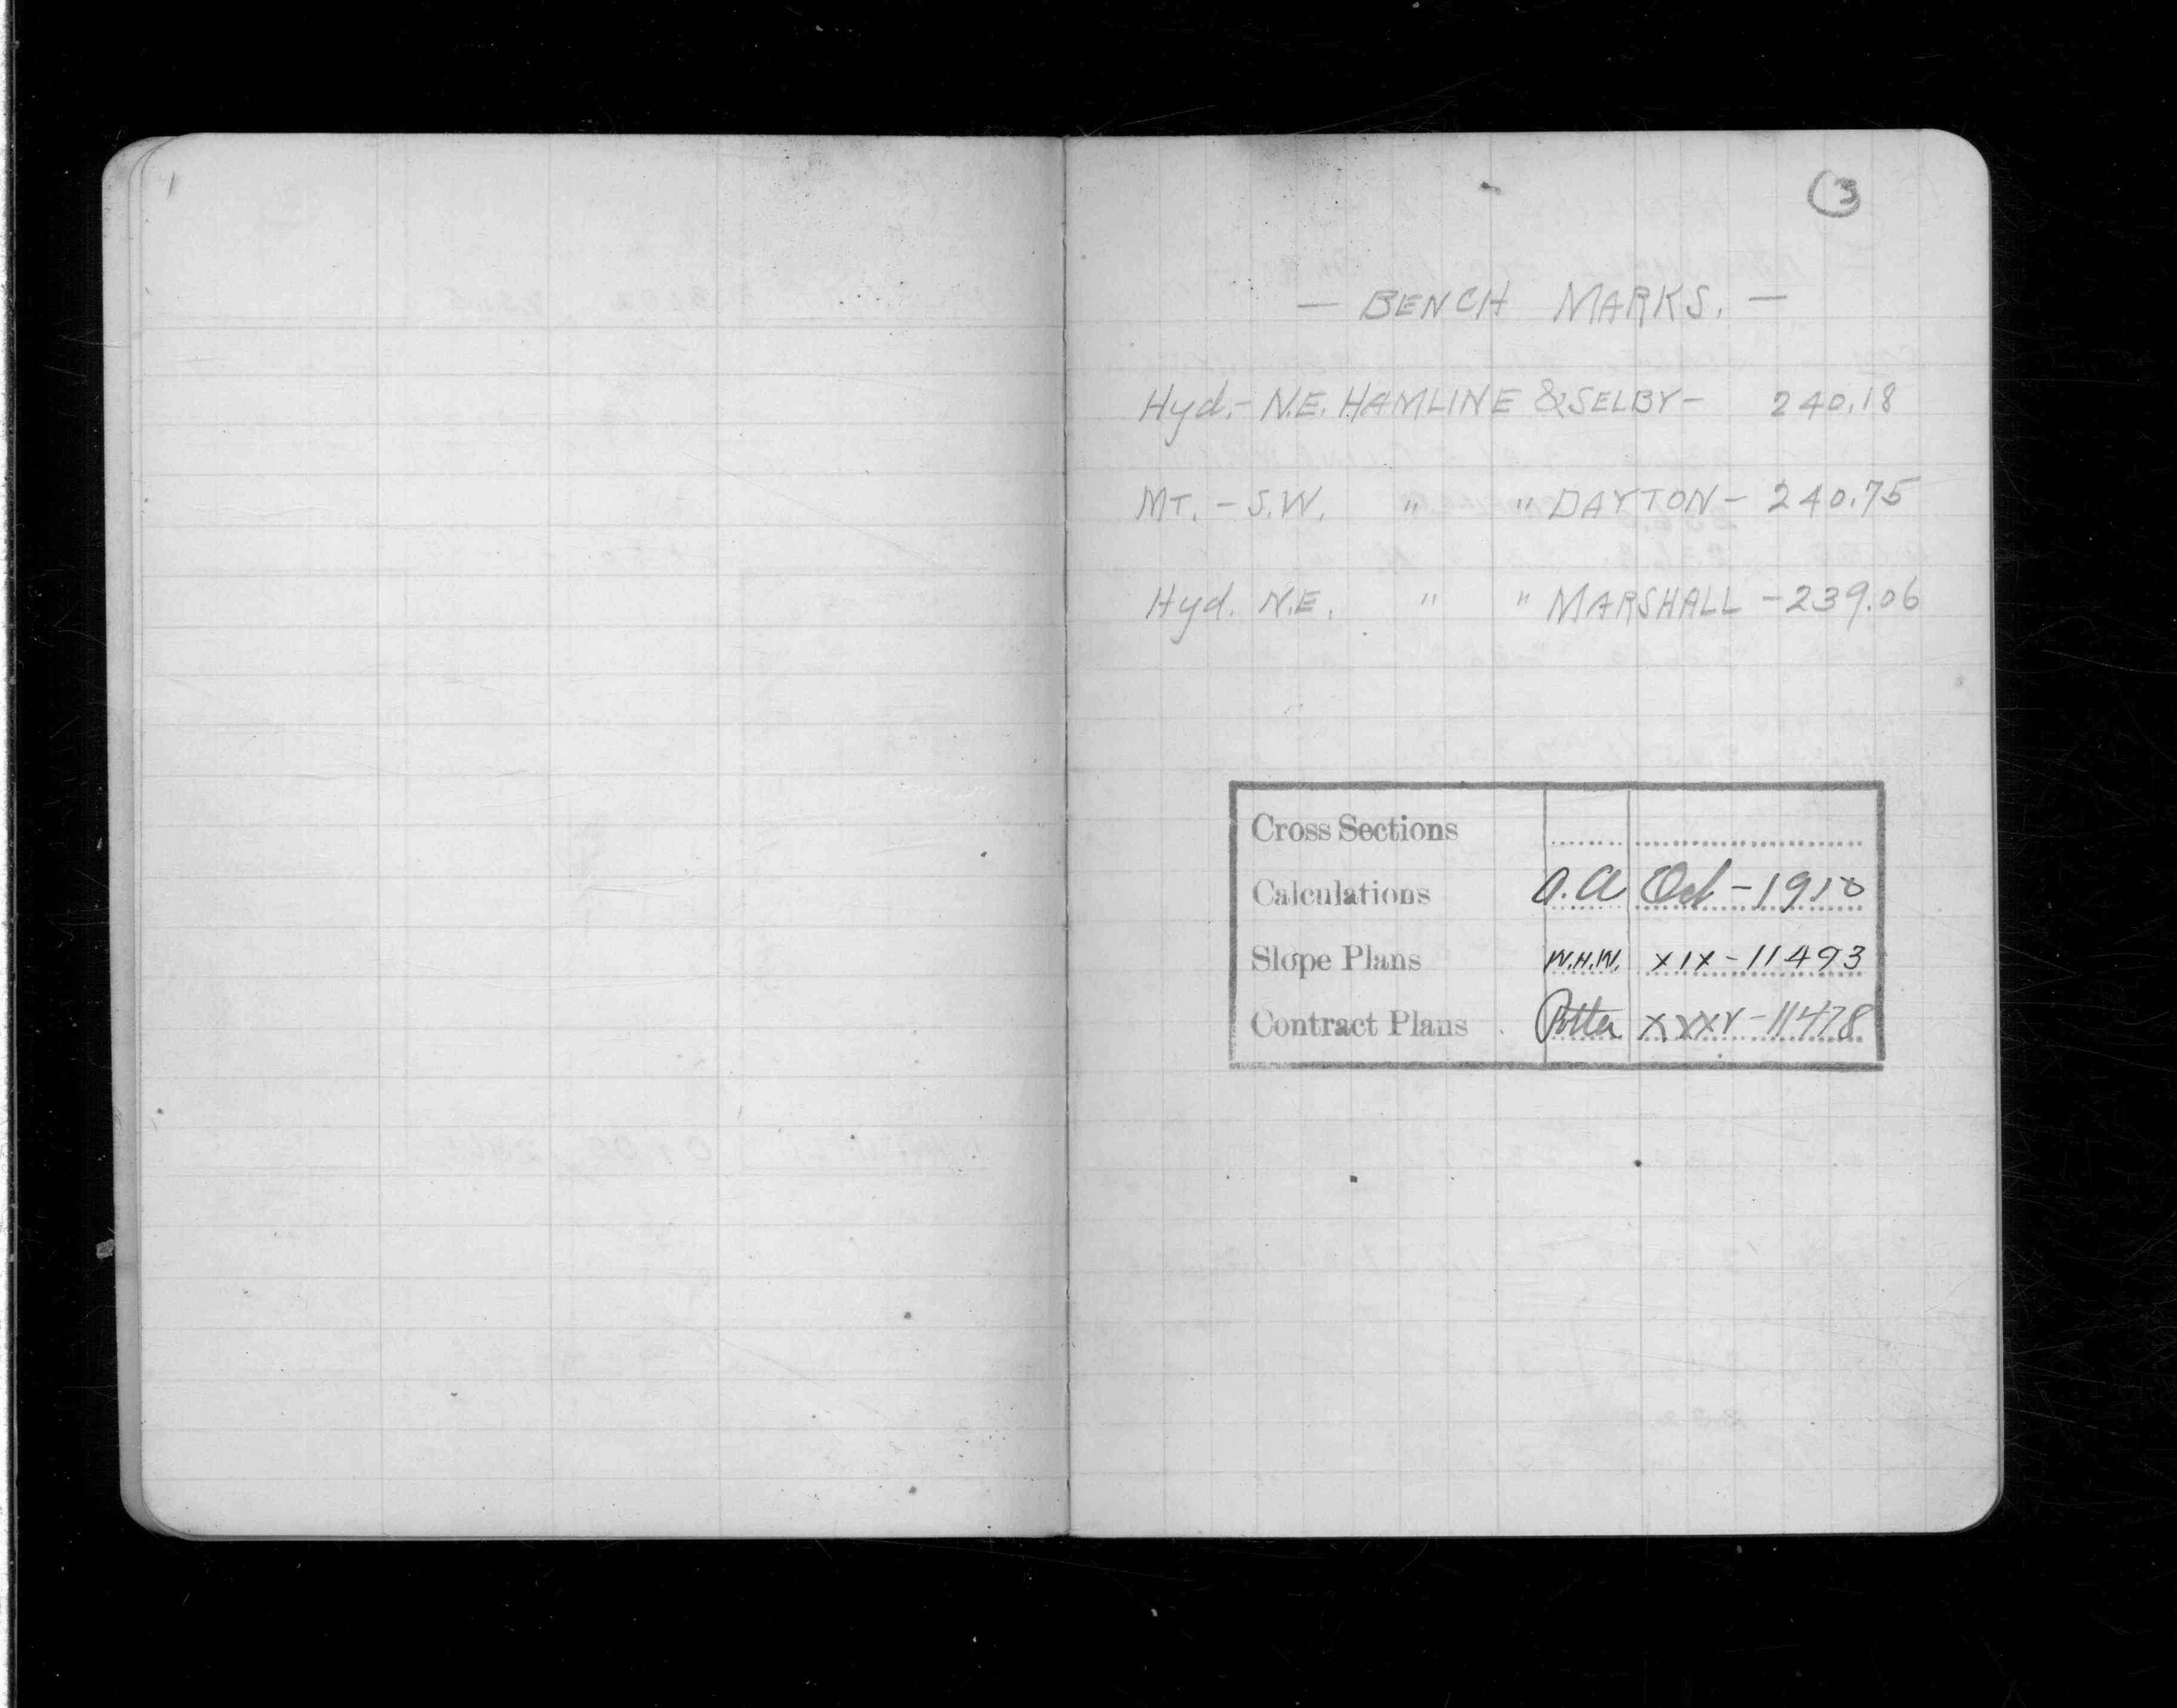 3
— BENCH MARKS. —
Hyd.- N.E. HAMLINE & SELBY- 240.18
MT. - S.W. " " DAYTON - 240.75
Hyd. N.E. " " MARSHALL - 239.06
Cross Sections
Calculations O.A Oct - 1910
Slope Plans W.H.W. XIX - 11493
Contract Plans Potter XXXV - 11478